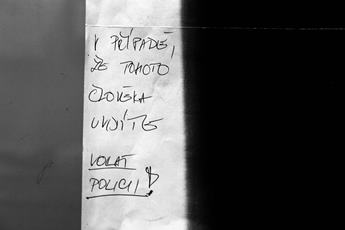 V PŘÍPADĚ,
ŽE TOHOTO
ČLOVĚKA
UVIDÍTE
VOLAT
POLICII!